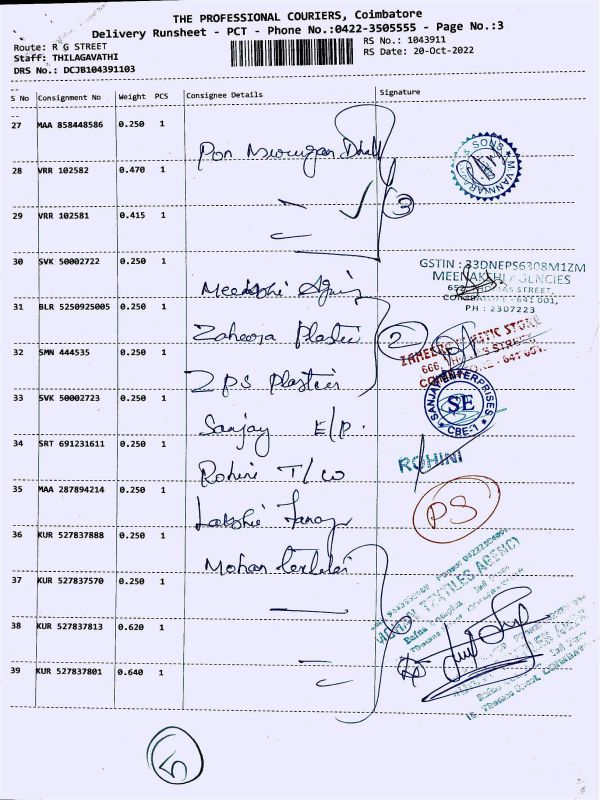 THE PROFESSIONAL COURIERS, Coimbatore
Delivery Runsheet - PCT - Phone No.:0422-3505555 - Page No.:3
Route: R G STREET
RS No.: 1043911
Staff: THILAGAVATHI
RS Date: 20-Oct-2022
DRS No.: DCJB104391103
S No Consignment No Weight PCS Consignee Details Signature
27 MAA 858448586 0.250 1
Pon Murugan
28 VRR 102582 0.470 1
29 VRR 102581 0.415 1
3
30 SVK 50002722 0.250 1
GSTIN : 33DNEPS6308M1ZM
MEENAKSHI AGENCIES
COIMBATORE - 641 001,
PH : 2307223
31 BLR 5250925005 0.250 1
Zaheera Plastic
2
32 SMN 444535 0.250 1
ZAHEERA PLASTIC STORE
ZPS Plastics
33 SVK 50002723 0.250 1
SANJAY ENTERPRISES
SE
CBE-1
Sanjay E/P.
34 SRT 691231611 0.250 1
Rohini T/Co
ROHINI
35 MAA 287894214 0.250 1
PS
36 KUR 527837888 0.250 1
Mohan
MOHAN TEXTILES AGENCY
37 KUR 527837570 0.250 1
38 KUR 527837813 0.620 1
39 KUR 527837801 0.640 1
5